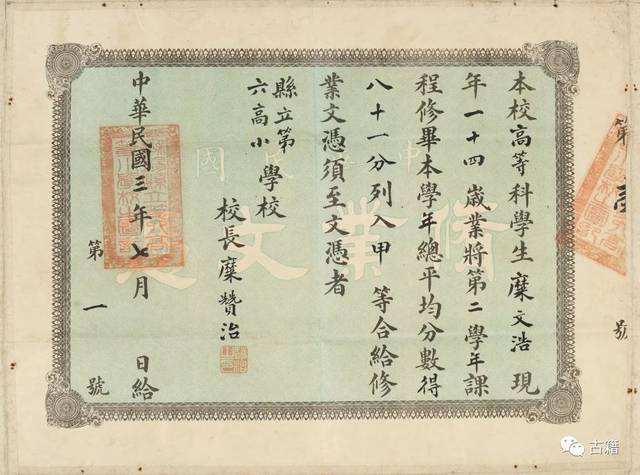 本校高等科學生糜文浩現
年一十四歲業將第二學年課
程修畢本學年總平均分數得
八十一分列入甲等合給修
業文憑須至文憑者
縣立第
六高小學校
校長糜贊治
中華民國三年七月 日給
第一號
修業文憑
號
古籍